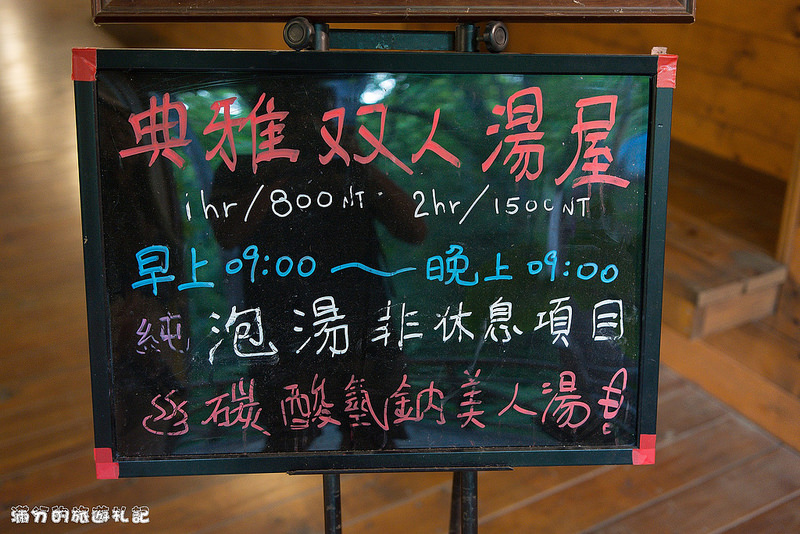 典雅双人湯屋
1hr/800NT 2hr/1500NT
早上09:00～晚上09:00
純泡湯非休息項目
碳酸氫鈉美人湯
滿分的旅遊札記